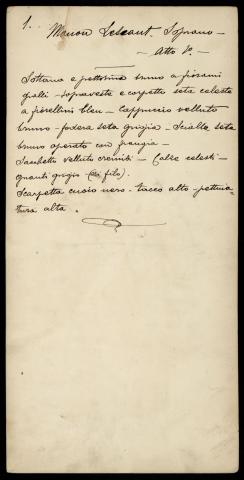 1. Manon Lescaut. Soprano -
- Atto 1º -
Sottana e pettorina bruno a fiorami
gialli - sopraveste e corpetto seta celeste
a fiorellini bleu - Cappuccio velluto
bruno - fodera seta grigia - Scialle seta
bruno operato con frangia -
Sacchetti velluto - Calze celesti -
guanti grigio - (di filo).
Scarpetta cuoio nero - tacco alto - pettina-
tura alta.